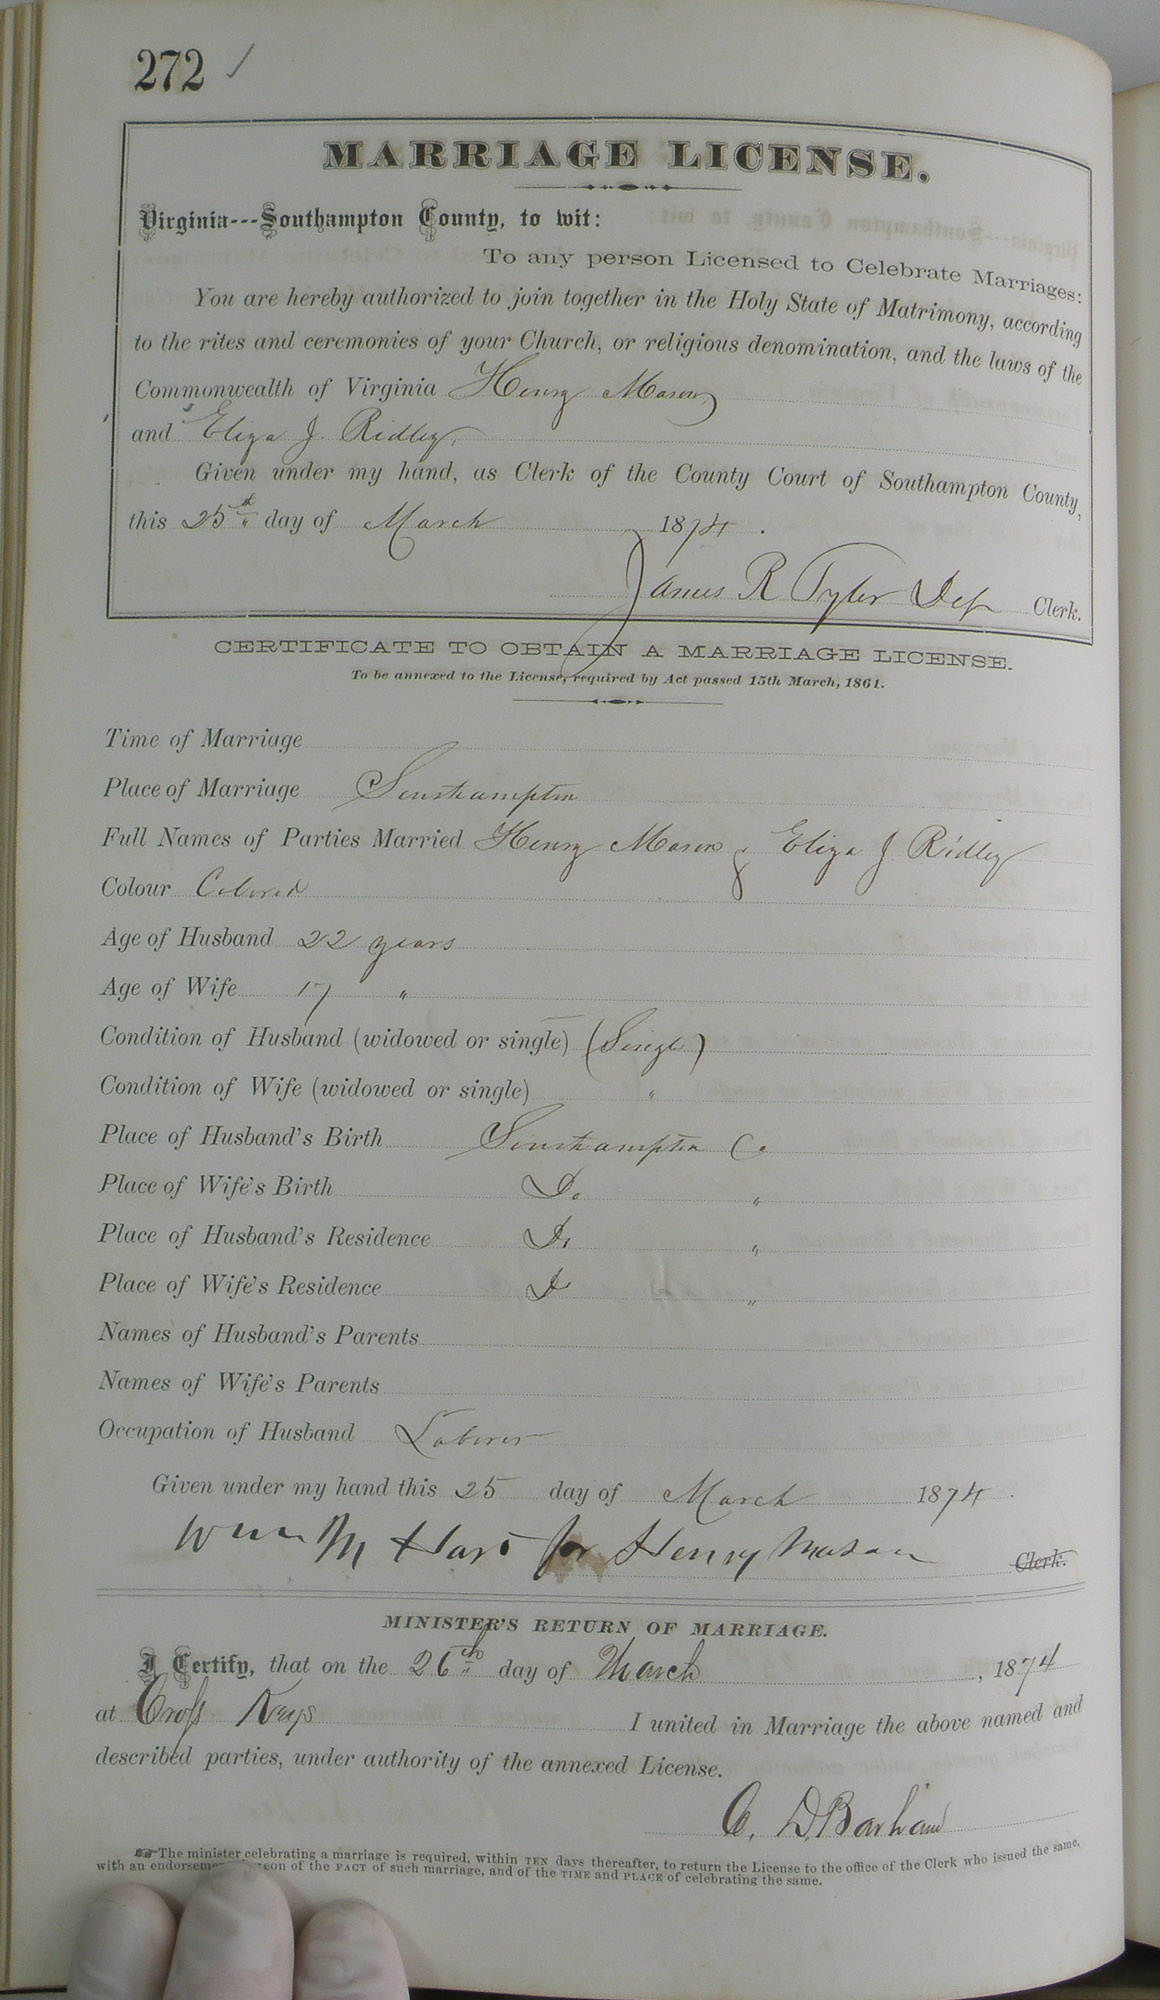 272
MARRIAGE LICENSE.
Virginia---Southampton County, to wit:
To any person Licensed to Celebrate Marriages:
You are hereby authorized to join together in the Holy State of Matrimony, according
to the rites and ceremonies of your Church, or religious denomination, and the laws of the
Commonwealth of Virginia Henry Mason
and Eliza J. Ridley.
Given under my hand, as Clerk of the County Court of Southampton County,
this 25th day of March 1874.
James R Tyler Dep Clerk.
CERTIFICATE TO OBTAIN A MARRIAGE LICENSE.
To be annexed to the License, required by Act passed 15th March, 1861.
Time of Marriage
Place of Marriage Southampton
Full Names of Parties Married Henry Mason & Eliza J Ridley
Colour Colored
Age of Husband 22 years
Age of Wife 17 "
Condition of Husband (widowed or single) (Single)
Condition of Wife (widowed or single) "
Place of Husband's Birth Southampton Co
Place of Wife's Birth Do "
Place of Husband's Residence Do "
Place of Wife's Residence Do "
Names of Husband's Parents
Names of Wife's Parents
Occupation of Husband Laborer
Given under my hand this 25 day of March 1874.
M Hart for Henry Mason Clerk.
MINISTER'S RETURN OF MARRIAGE.
I Certify, that on the 26th day of March, 1874
at Cross Keys I united in Marriage the above named and
described parties, under authority of the annexed License.
C. D. Barham
The minister celebrating a marriage is required, within TEN days thereafter, to return the License to the office of the Clerk who issued the same,
with an endorsement of the FACT of such marriage, and of the TIME and PLACE of celebrating the same.